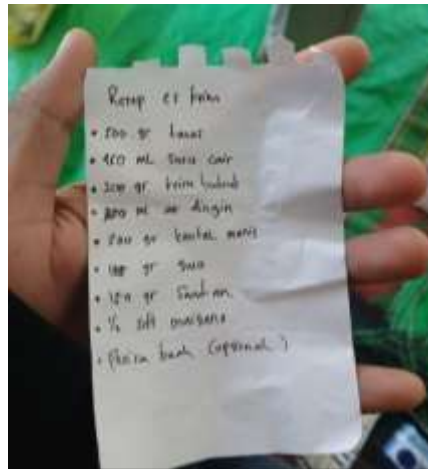 Resep es krim
• 500 gr talas
• 450 mL susu cair
• 200 gr krim bubuk
• ml air dingin
• 200 gr kental manis
• 100 gr gula
• 150 gr Santan
• ½ sdt maizena
• Perisa buah (opsional)